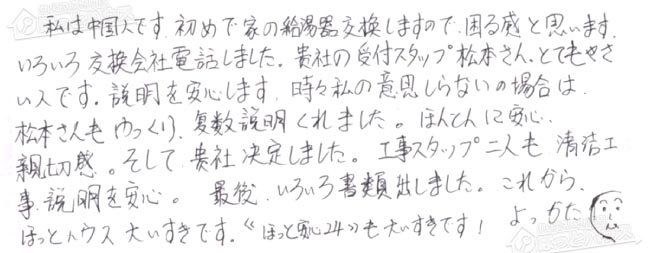 私は中国人です.初めで家の給湯器交換しますので.困る感と思います.
いろいろ交換会社電話しました。貴社の受付スタップ松本さん.とてもやさ
い人です。説明を安心します.時々私の意思しらないの場合は.
松本さんもゆっくり、复数説明くれました。ほんてんに安心.
親切感。そして.貴社決定しました。工事スタップ二人も清洁工
事.説明を安心。最後.いろいろ書類出しました。これから.
ほっとハウス大いすきです。《ほっと安心24》も大いすきです！よっかた